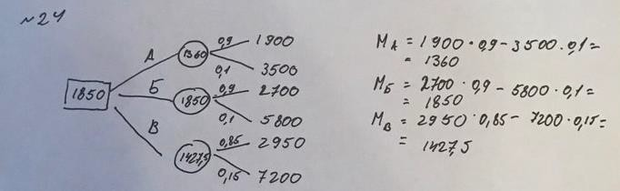 ~24
A
1360
0,9
1900
0,1
3500
1850
Б
1850
0,9
2700
0,1
5800
В
1427,5
0,85
2950
0,15
7200
MА = 1900 · 0,9 - 3500 · 0,1 =
= 1360
MБ = 2700 · 0,9 - 5800 · 0,1 =
= 1850
MВ = 2950 · 0,85 - 7200 · 0,15 =
= 1427,5